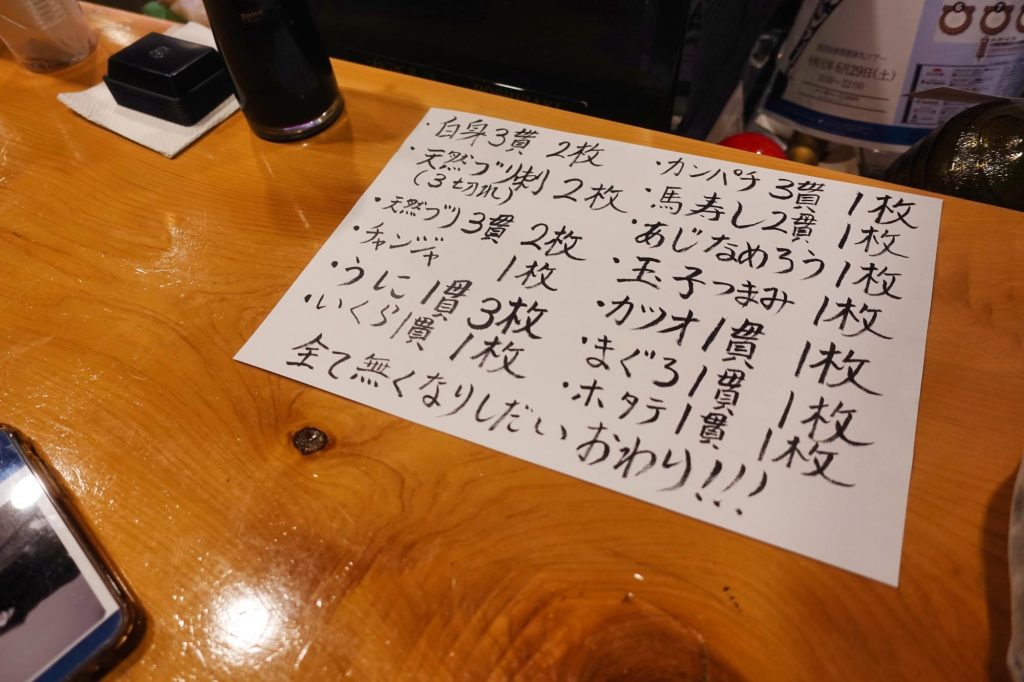 ・白身3貫 2枚
・天然ブリ刺 2枚
(3切れ)
・天然ブリ3貫 2枚
・チャンジャ 1枚
・うに1貫 3枚
・いくら1貫 1枚
・カンパチ3貫 1枚
・馬寿し2貫 1枚
・あじなめろう 1枚
・玉子つまみ 1枚
・カツオ1貫 1枚
・まぐろ1貫 1枚
・ホタテ1貫 1枚
全て無くなりしだいおわり!!!
Forest
6月29日(土)